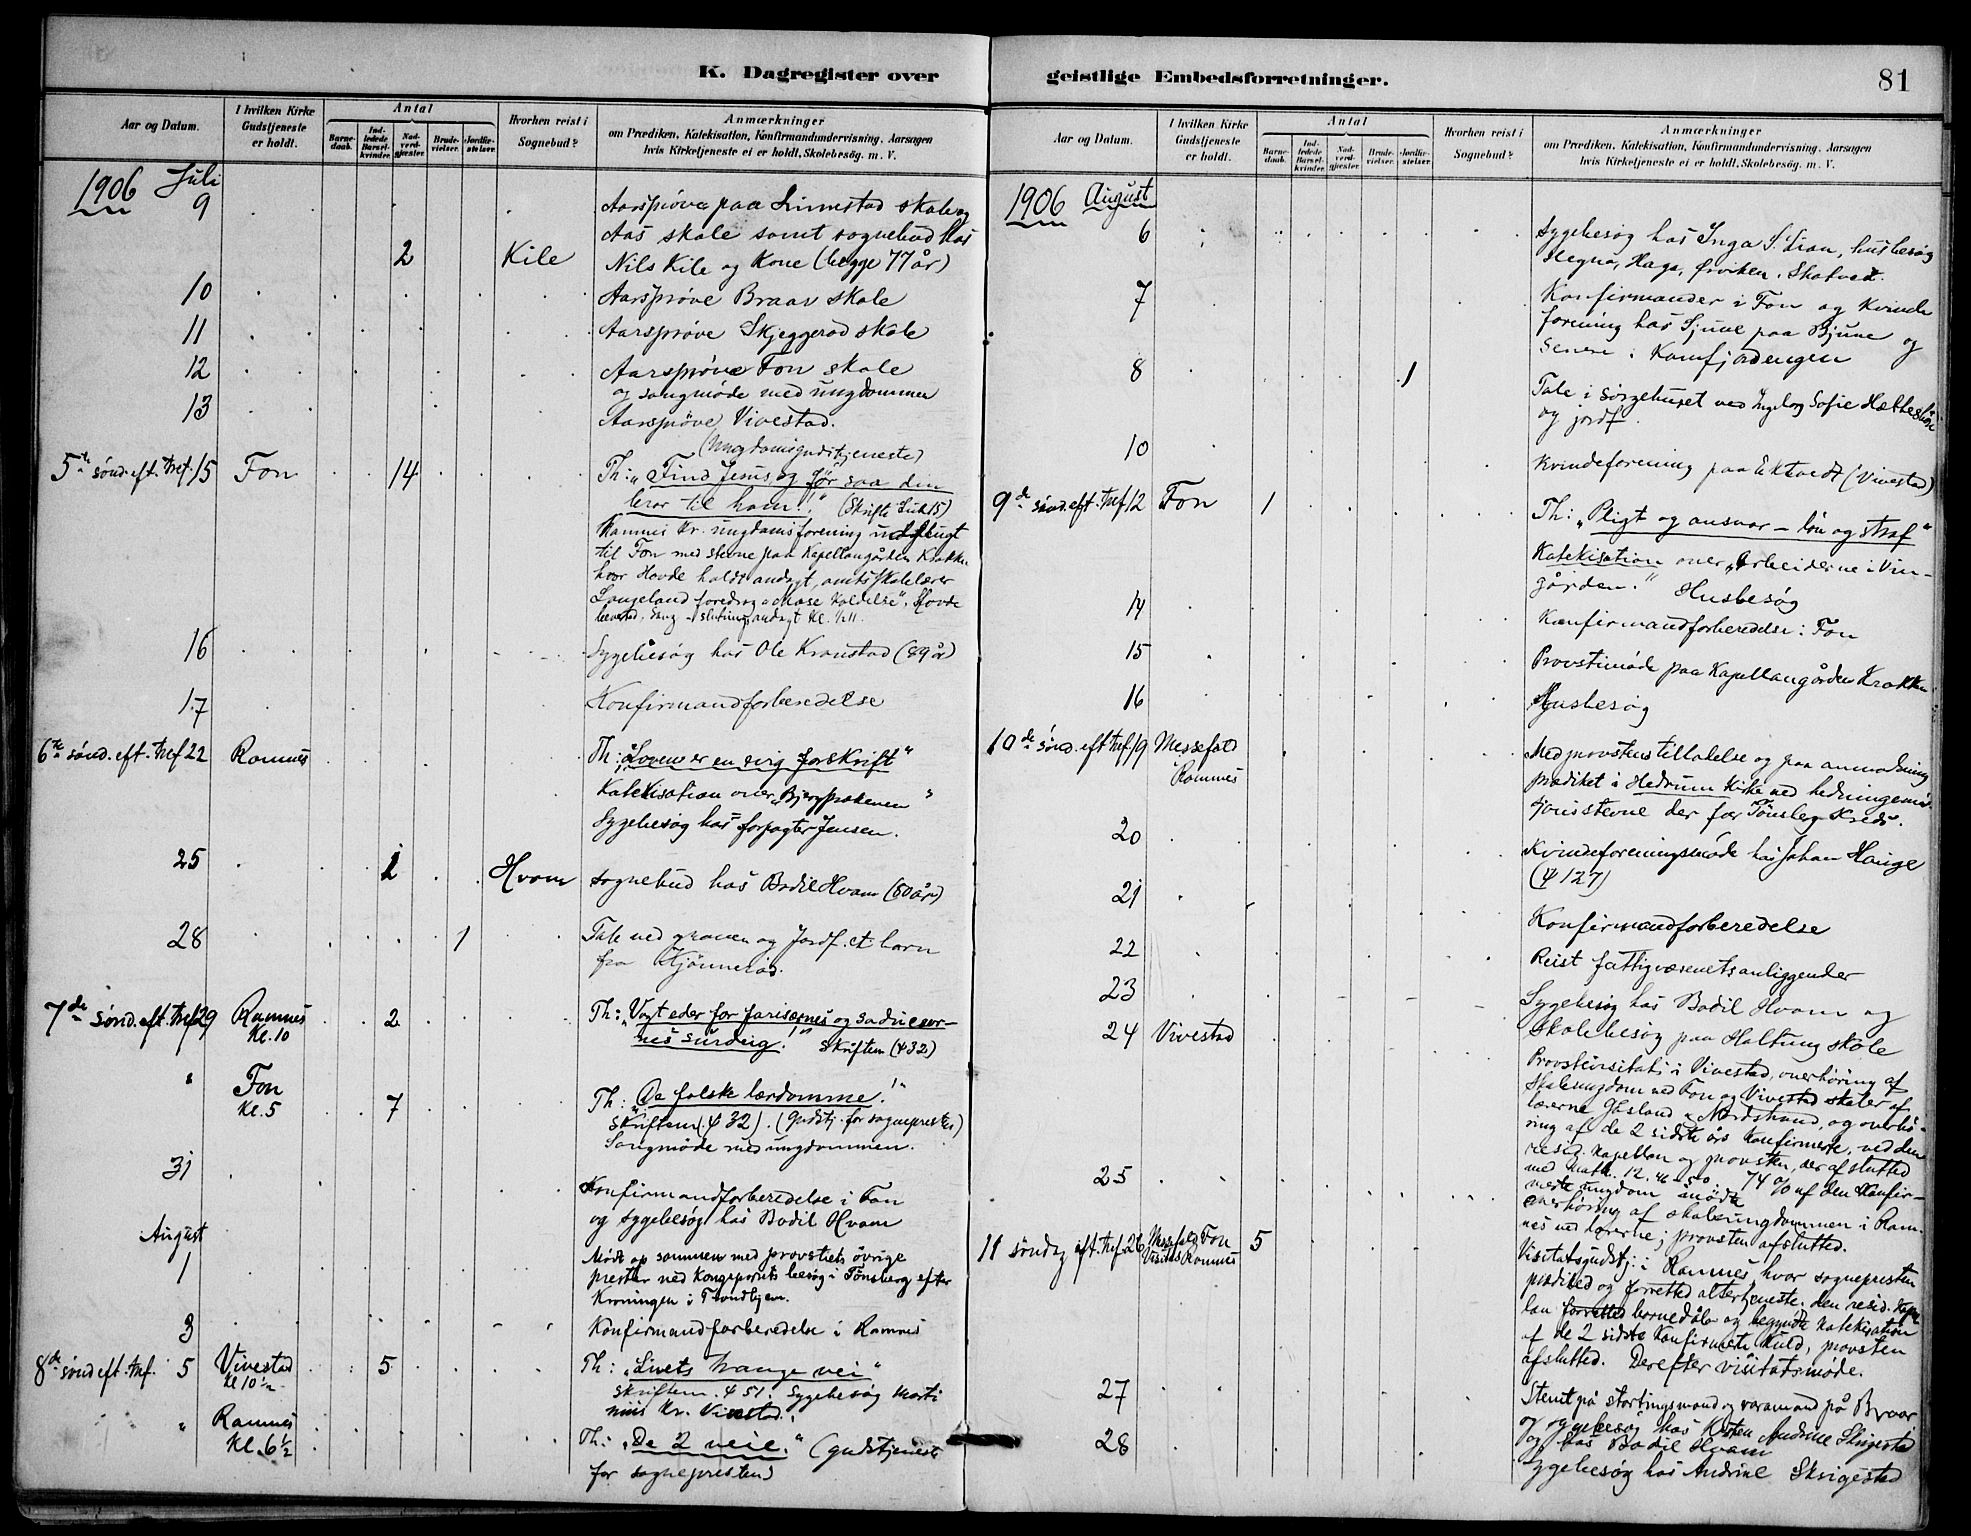 K. Dagregister over
Aar og Datum.
I hvilken Kirke Gudstjeneste er holdt.
Antal
Barnedaab.
Indledede Barselkvinder.
Nadverdgjester.
Brudevielser.
Jordfæstelser.
Hvorhen reist i Sognebud?
Anmærkninger
om Prædiken, Katekisation, Konfirmandundervisning, Aarsagen
hvis Kirketjeneste ei er holdt, Skolebesøg. m. V.
1906 Juli
9 Aarsprøve paa Linnestad skole og
Aas skole samt sognebud hos
2 Kile Nils Kile og Kone (begge 77 år)
10 Aarsprøve Braar skole
11 Aarsprøve Skjeggerød skole
12 Aarsprøve Fon skole
og sangmøde med ungdommen
13 Aarsprøve Vivestad.
(Ungdomsgudstjeneste)
5te sønd. eft. tref. 15 Fon 14 Th: „Find Jesus, og før saa din
bror til ham!" (Skrifte Luk 15)
Ramnes kr. ungdomsforening indbudt
til Fon med stevne paa Kapellangården Krakken
hvor Hovde holdt andagt, amtsskolelærer
Langeland foredrog „Mose Kaldelse". Hovde
Sang - slutningsandagt Kl. ½11.
16 Sygebesøg hos Ole Kronstad (89 år)
17 Konfirmandforberedelse
6te sønd. eft. tref 22 Ramnes Th: „Loven er en evig forskrift"
Katekisation over „Bjergprækenen"
Sygebesøg hos forpagter Jensen.
25 1 Hvam sognebud hos Bodil Hvam (80 år)
28 1 Tale ved graven og Jordf. et barn
fra Kjønnerød.
7de sønd. eft. tref 29 Ramnes Kl. 10 2 Th: „Vogt eder for farisæernes og saducæer-
nes surdeig!" Skriftem (ψ 32)
" Fon Kl. 5 7 Th: „De falske lærdomme!"
Skriftem (ψ 32). (Gudstj. for sognepresten)
Sangmøde med ungdommen.
31 Konfirmandforberedelse i Fon
og sygebesøg hos Bodil Hvam
August
1 Mødt op sammen med provstiets øvrige
prester ved Kongeparets besøg i Tønsberg efter
Kroningen i Trondhjem.
3 Konfirmandforberedelse i Ramnes
8de sønd eft. tref. 5 Vivestad Kl 10½ 5 Th: „Livets trange vei"
Skriftem. ψ 51. Sygebesøg Marti
nius Kr. Vivestad.
" Ramnes Kl. 6½ Th: „De 2 veie." (gudstjeneste
for sognepresten)
geistlige Embedsforretninger.
81
Aar og Datum.
I hvilken Kirke Gudstjeneste er holdt.
Antal
Barnedaab.
Indledede Barselkvinder.
Nadverdgjester.
Brudevielser.
Jordfæstelser.
Hvorhen reist i Sognebud?
Anmærkninger
om Prædiken, Katekisation, Konfirmandundervisning, Aarsagen
hvis Kirketjeneste ei er holdt, Skolebesøg. m. V.
1906 August
6 Sygebesøg hos Inga S. Lian, husbesøg
Hegna, Haga, Ørviken, Skatvet.
7 Konfirmander i Fon og Kvinde
forening hos Sjuve paa Bjune og
senere i Kamfjordengen
8 1 Tale i sørgehuset ved Ingeborg Sofie
og jordf.
10 Kvindeforening paa Ektvedt (Vivestad)
9de sønd. eft. tref 12 Fon 1 Th: „Pligt og ansvar – løn og straf"
Katekisation over „Arbeiderne i Vin-
gården." Husbesøg
14 Konfirmandforberedelse i Fon
15 Provstimøde paa Kapellangården Krakken
16 Husbesøg
10de sønd. eft tref 19 Messefald Ramnes Med provstens tilladelse og paa anmodning
prædiket i Hedrum Kirke ved hedningemis-
sjonsstevne der for Tønsberg Kreds.
20 Kvindeforeningsmøde hos Johan Hauge
(ψ 127)
21 Konfirmandforberedelse
22 Reist fattigvæsenets anliggender
23 Sygebesøg hos Bodil Hvam og
Skolebesøg paa Haltung skole
24 Vivestad Provstevisitats i Vivestad, overhøring af
Skoleungdom ved Fon og Vivestad skoler af
lærerne Gåsland & Nordstrand, og overhø-
ring af de 2 sidste års Konfirmerte, ved den
resid. Kapellan og provsten, der afsluttede
med Math. 12, 46-50. 74 % af den Konfir-
merte ungdom mødte
25 Overhøring af skoleungdommen i Ram-
nes ved lærerne; provsten afsluttede.
11 søndag eft. tref. 26 Messefald Fon Visitats Ramnes 5 Visitatsgudstj: i Ramnes, hvor sognepresten
prædiked og forretted altertjeneste. Den resid. Kapel
lan forretted barnedåb og begyndte Katekisation
af de 2 sidste Konfirmerte Kuld, provsten
afsluttede. Derefter visitatsmøde.
27 Stemt på stortingsmand og varamand på Braar
og sygebesøg hos Andrine Skigestad
og hos Bodil Hvam
28 Sygebesøg hos Andrine Skigestad